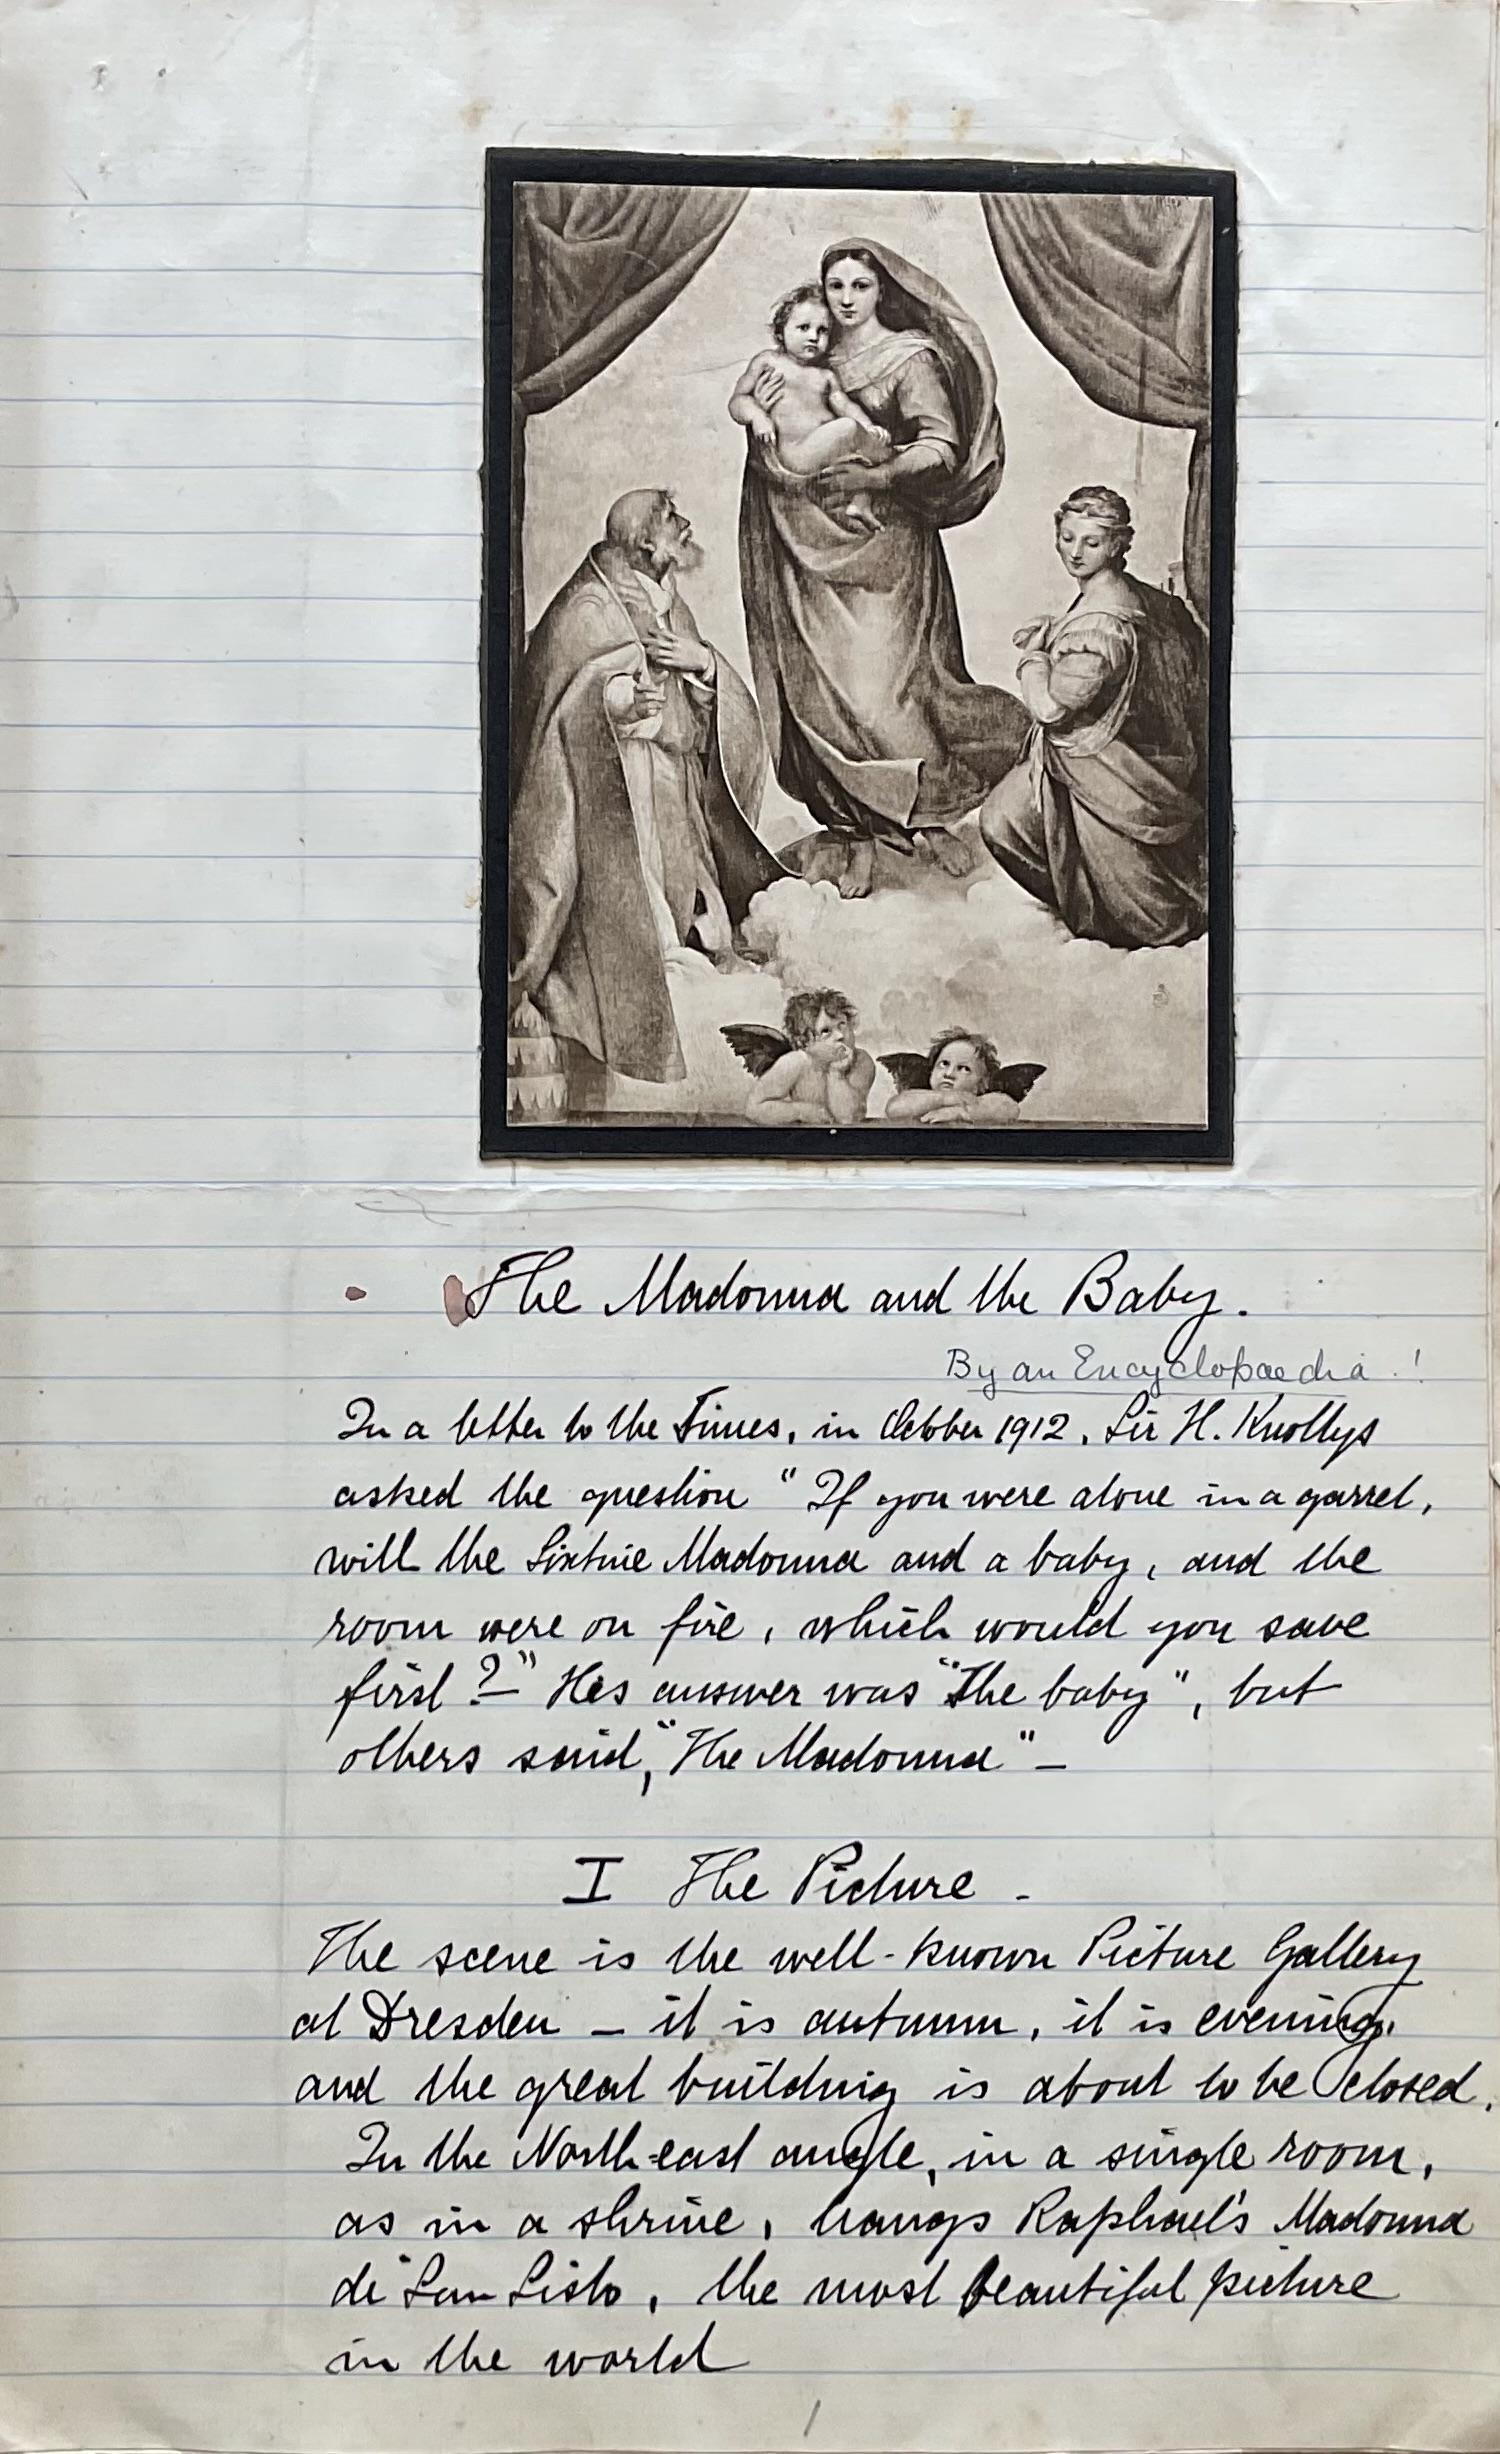 The Madonna and the Baby.
By an Encyclopaedia !
In a letter to the Times, in October 1912, Sir H. Knollys
asked the question "If you were alone in a garret,
with the Sixtine Madonna and a baby, and the
room were on fire, which would you save
first?" His answer was "The baby", but
others said, "The Madonna" –
I The Picture -
The scene is the well-known Picture Gallery
at Dresden – it is autumn, it is evening,
and the great building is about to be closed.
In the North-east angle, in a single room,
as in a shrine, hangs Raphael's Madonna
di San Sisto, the most beautiful picture
in the world
1